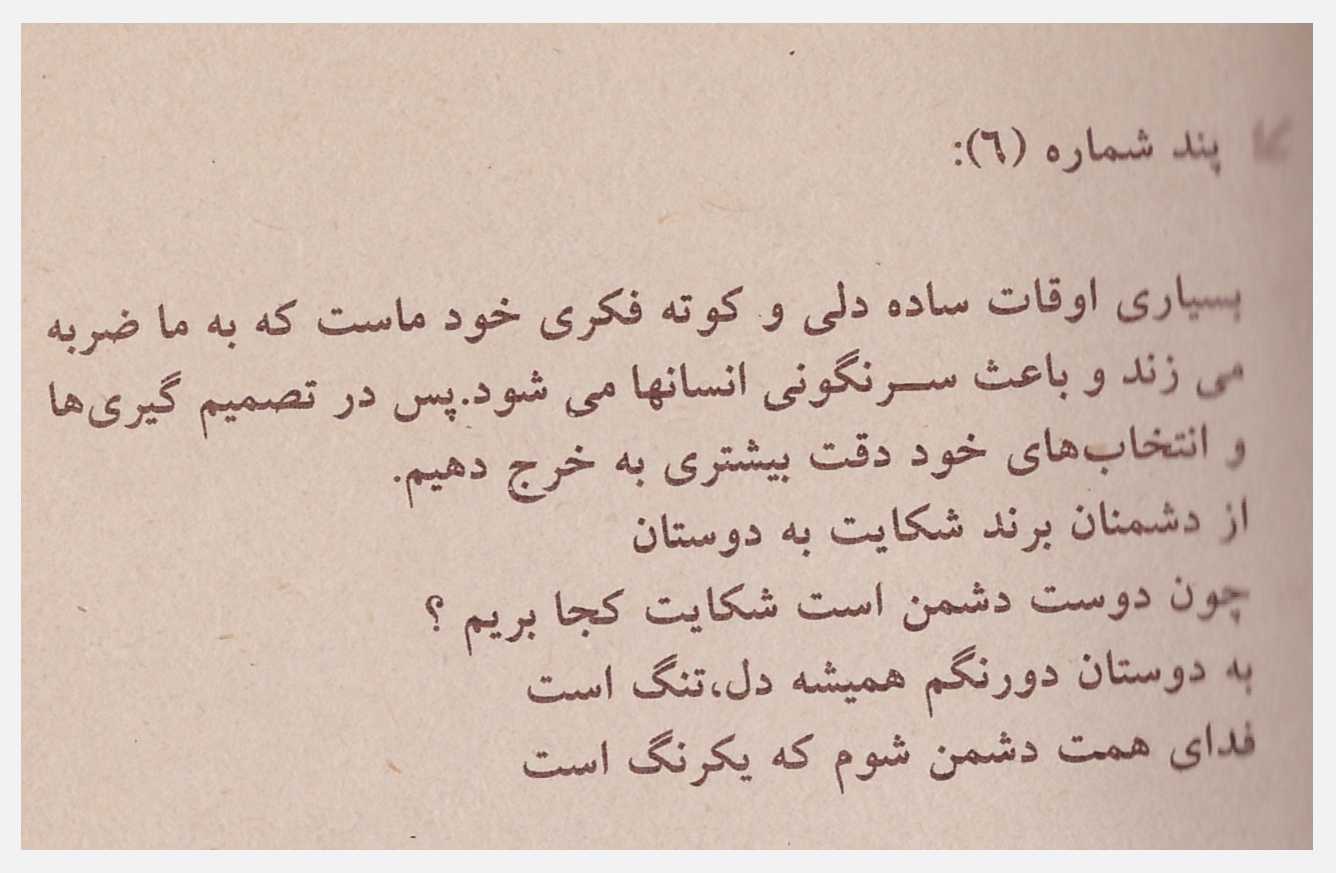 پند شماره (٦):
بسیاری اوقات ساده دلی و کوته فکری خود ماست که به ما ضربه
می زند و باعث سـرنگونی انسانها می شود.پس در تصمیم گیری‌ها
و انتخاب‌های خود دقت بیشتری به خرج دهیم.
از دشمنان برند شکایت به دوستان
چون دوست دشمن است شکایت کجا بریم ؟
به دوستان دورنگم همیشه دل،تنگ است
فدای همت دشمن شوم که یکرنگ است